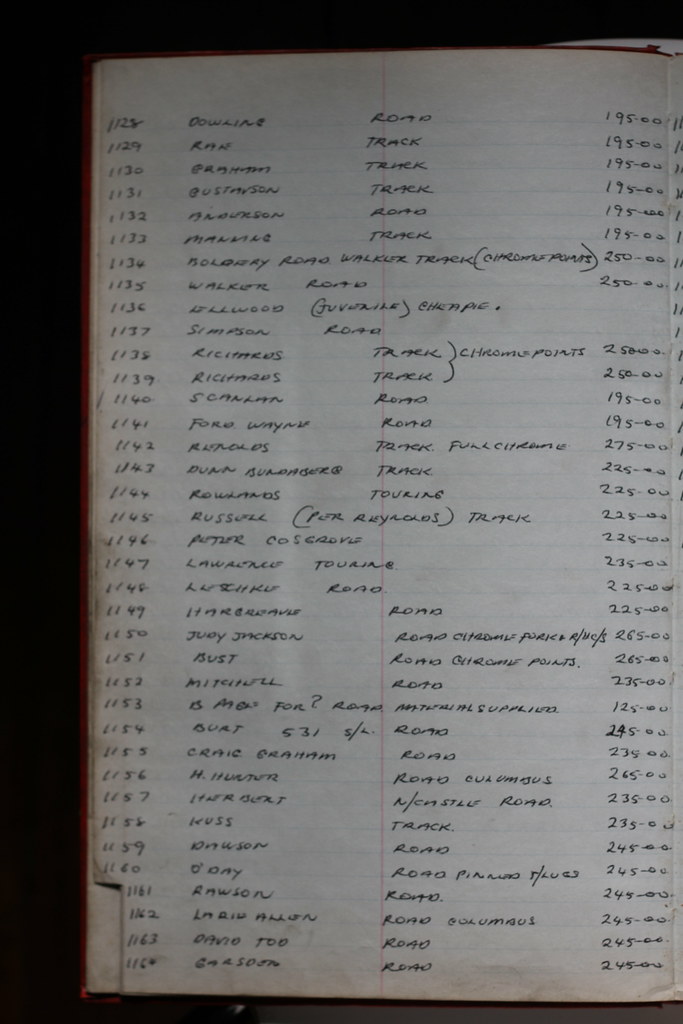 1128 DOWLING ROAD 195-00
1129 RAE TRACK 195-00
1130 GRAHAM TRACK 195-00
1131 GUSTAVSON TRACK 195-00
1132 ANDERSON ROAD 195-00
1133 MANNING TRACK 195-00
1134 ROAD WALKER TRACK (CHROME POINTS) 250-00
1135 WALKER ROAD 250-00
1136 ELLWOOD (JUVENILE) CHEAPIE.
1137 SIMPSON ROAD
1138 RICHARDS TRACK } CHROME POINTS 250-00
1139 RICHARDS TRACK } 250-00
1140 SCANLAN ROAD 195-00
1141 FORD WAYNE ROAD 195-00
1142 RENOLDS TRACK. FULL CHROME 275-00
1143 DUNN BUNDABERG TRACK. 225-00
1144 ROWLANDS TOURING 225-00
1145 RUSSELL (PER REYNOLDS) TRACK 225-00
1146 PETER COSGROVE 225-00
1147 LAWRENCE TOURING 235-00
1148 LESCHKE ROAD. 225-00
1149 HARGREAVE ROAD 225-00
1150 JUDY JACKSON ROAD CHROME FORK & R/H/C/S 265-00
1151 BUST ROAD CHROME POINTS. 265-00
1152 MITCHELL ROAD 235-00
1153 B FOR? ROAD MATERIAL SUPPLIED. 125-00
1154 BURT 531 S/L. ROAD 245-00
1155 CRAIG GRAHAM ROAD 235-00
1156 H. HUNTER ROAD COLUMBUS 265-00
1157 HERBERT N/CASTLE ROAD. 235-00
1158 KUSS TRACK. 235-00
1159 DAWSON ROAD 245-00
1160 O'DAY ROAD PINNED F/LUGS 245-00
1161 RAWSON ROAD. 245-00
1162 ALLEN ROAD COLUMBUS 245-00
1163 DAVID TOD ROAD 245-00
1164 GARSDEN ROAD 245-00